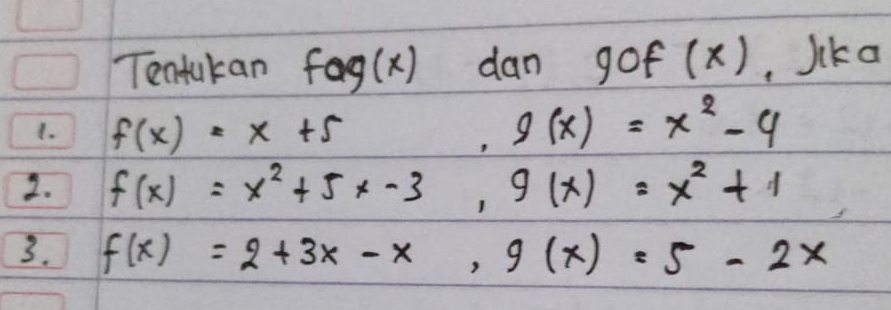 Tentukan fog(x) dan gof (x), Jika
1. f(x) = x + 5 , g (x) = x² - 4
2. f(x) = x² + 5x - 3 , g (x) = x² + 1
3. f(x) = 2 + 3x - x , g (x) = 5 - 2x